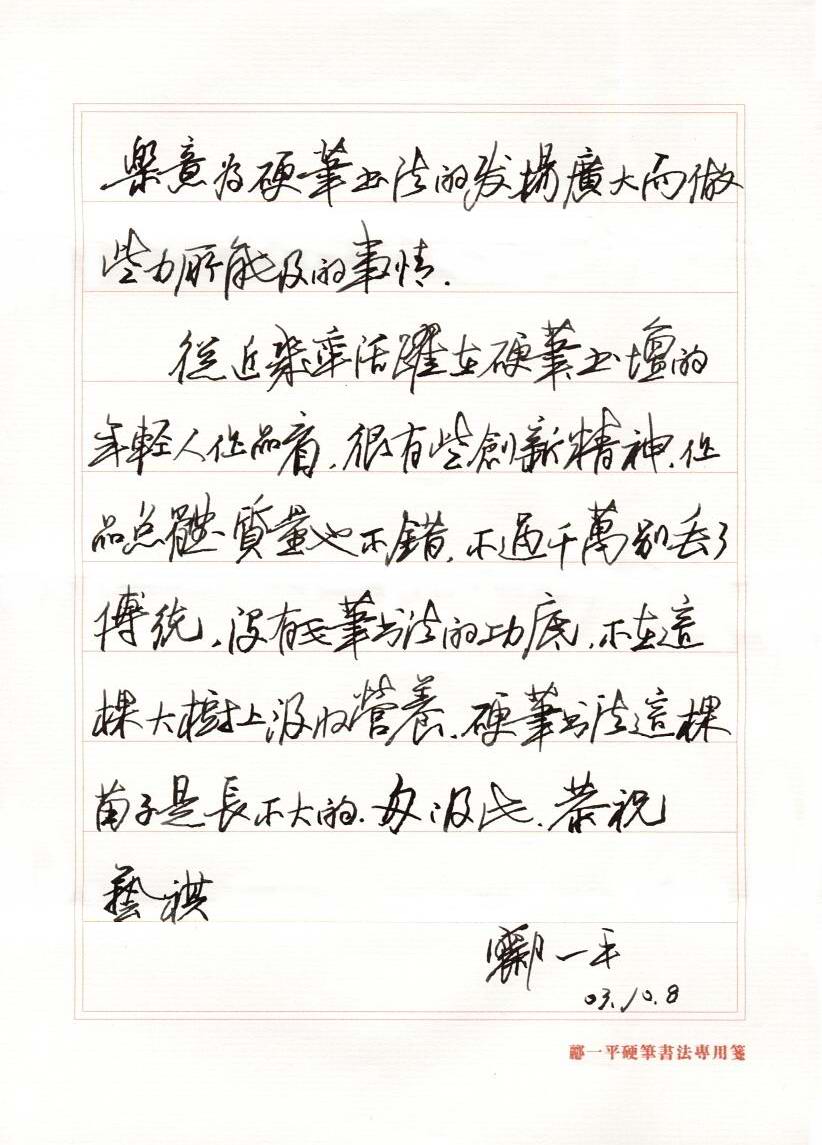 樂意为硬筆书法的发揚廣大而做
些力所能及的事情.
從近幾年活躍在硬筆书壇的
年輕人作品看,很有些創新精神.作
品总體质量也不錯,不過千萬别丢了
傳统,没有毛筆书法的功底,不在這
棵大樹上汲收营養,硬筆书法這棵
苗子是長不大的.匆汲此.恭祝
藝祺
酈一平
03.10.8
酈一平硬筆書法專用箋